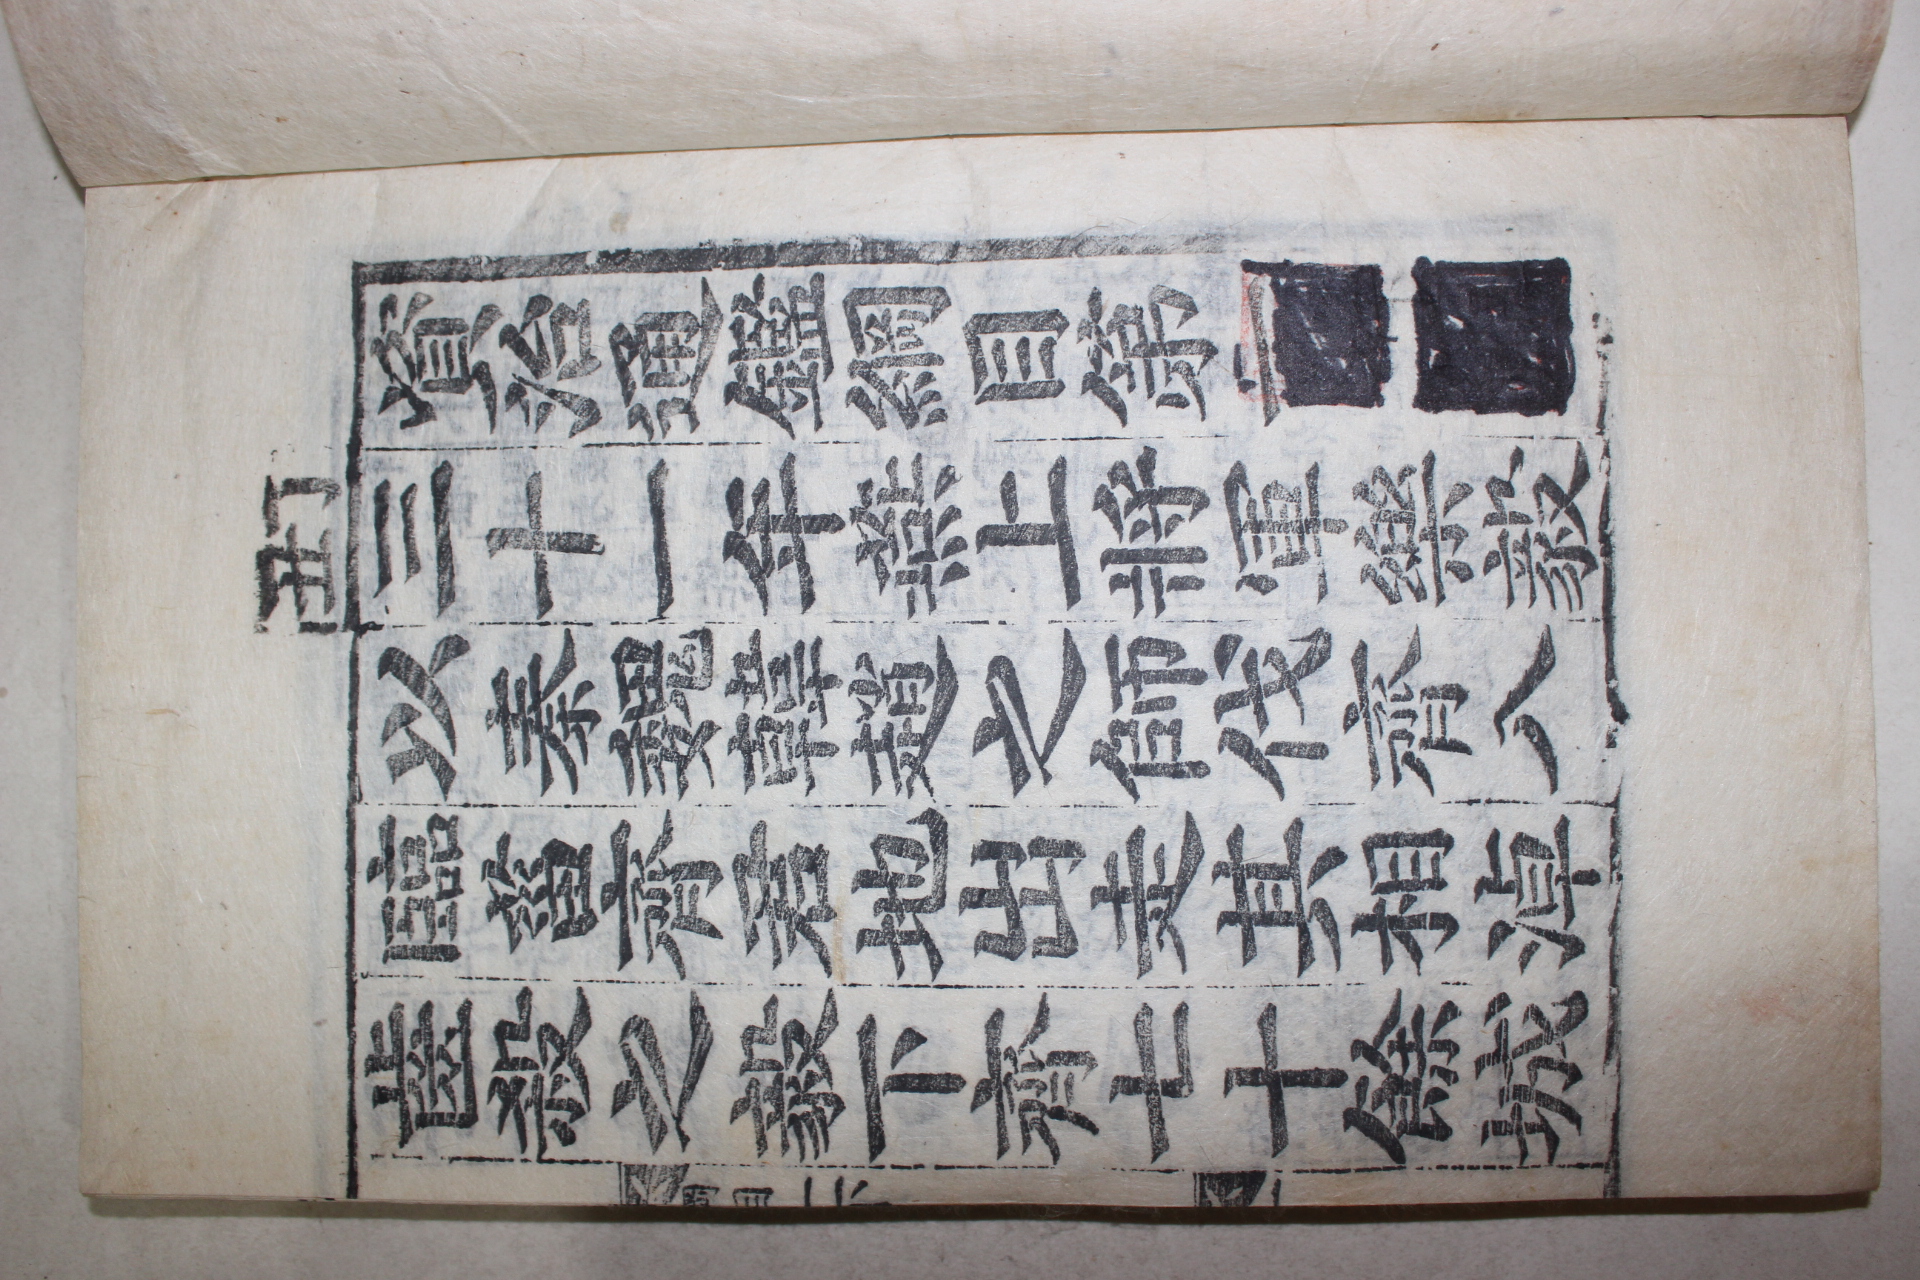 資治通鑑綱目第一
丁丑
三十一年燕上將軍樂毅
以秦魏韓趙之師伐齊入
臨菑齊君地出走其相淖
齒殺之毅下齊七十餘城
綱目